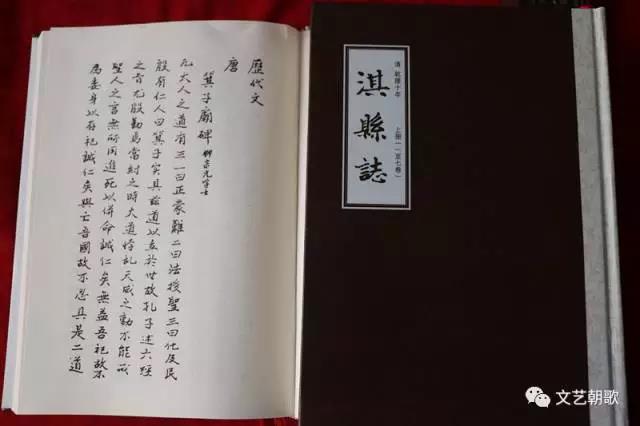 歷代文
唐
箕子廟碑 柳宗元
凡大人之道有三一曰正蒙難二曰法授聖三曰化及民
殷有仁人曰箕子實具茲道以立於世故孔子述六經
之旨尤殷勤焉當紂之時大道悖亂天威之動不能戒
聖人之言無所用進死以併命誠仁矣無益吾祀故不
為委身以存祀誠仁矣與亡吾國故不忍具是二道
清 乾隆十年 上册一（至七卷）
淇縣誌
文艺朝歌